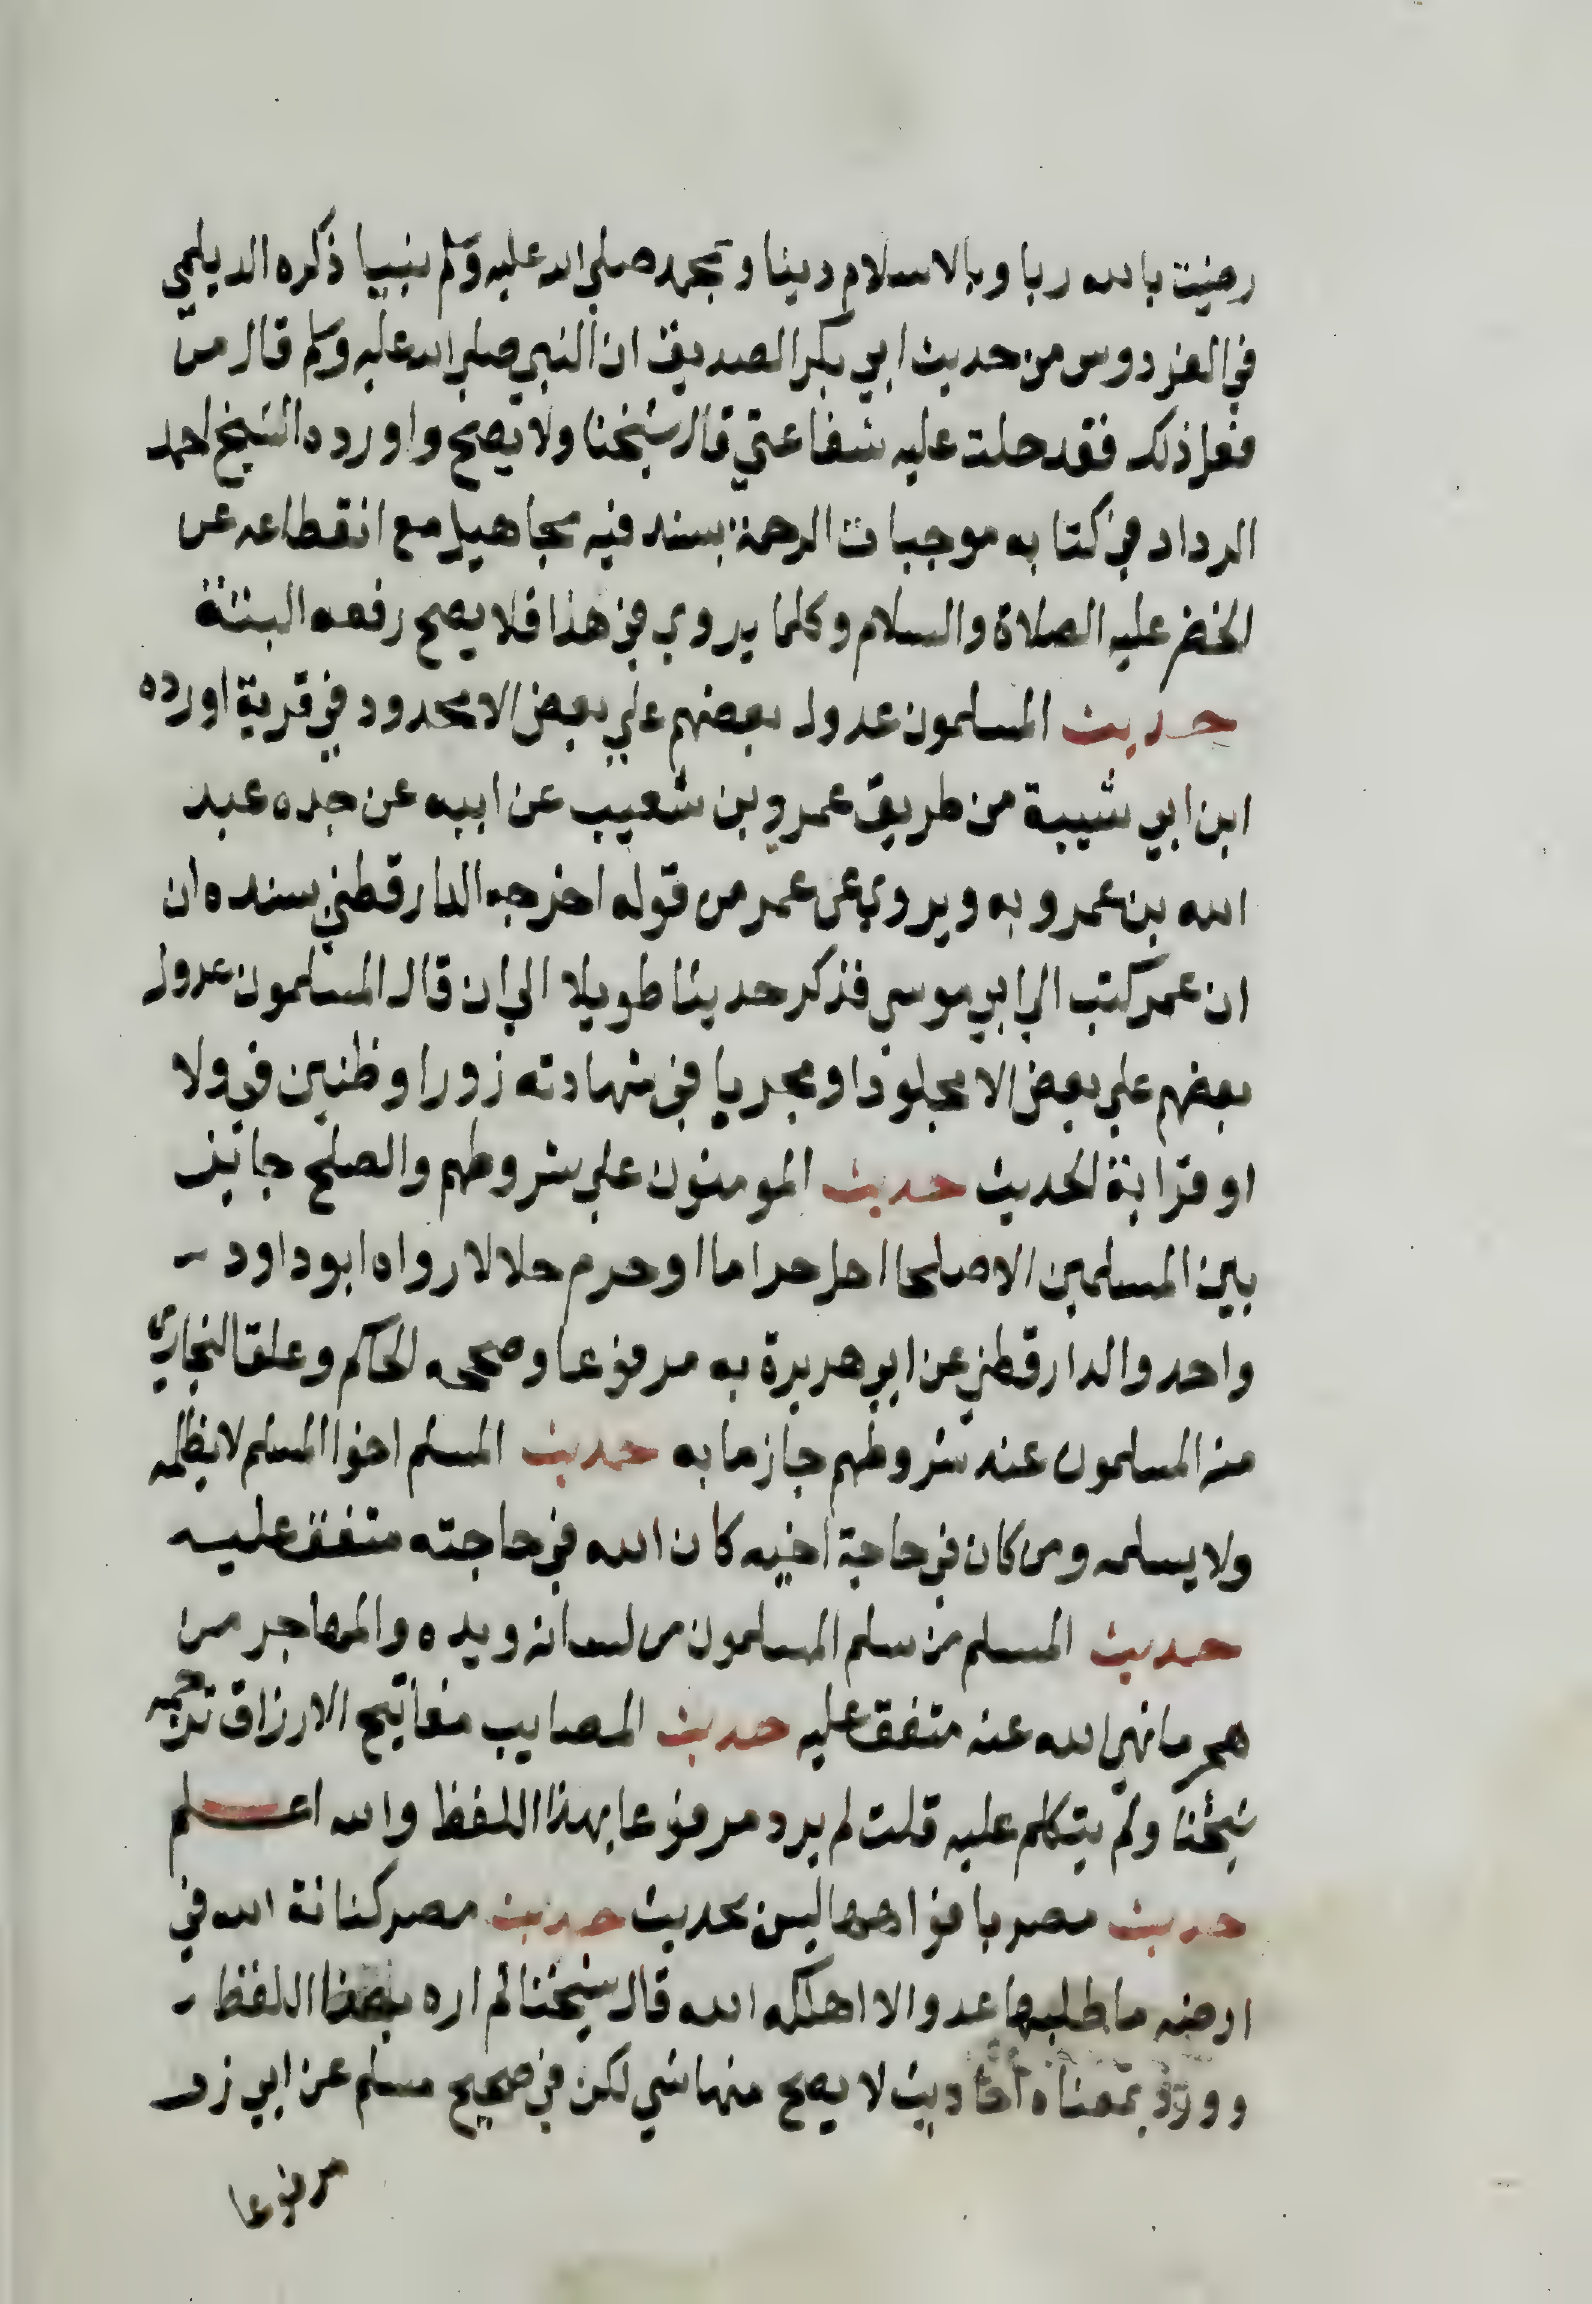 رضيت بالله ربا وبالاسلام دينا وبمحمد صلي الله عليه وسلم نبيا ذكره الديلمي
في الفردوس من حديث ابي بكر الصديق ان النبي صلي الله عليه وسلم قال من
فعل ذلك فقد حلت عليه شفاعتي قال شيخنا ولا يصح واورده الشيخ احمد
الرداد في كتابه موجبات الرحمة بسند فيه مجاهيل مع انقطاعه عن
الخضر عليه الصلاة والسلام وكلما يروي في هذا فلا يصح رفعه البتة
حديث المسلمون عدول بعضهم علي بعض الا محدود في قرية اورده
ابن ابي شيبة من طريق عمرو بن شعيب عن ابيه عن جده عبد
الله بن عمرو به ويروي عن عمر من قوله اخرجه الدارقطني بسنده ان
ان عمر كتب الي ابي موسي فذكر حديثا طويلا الي ان قال المسلمون عدول
بعضهم علي بعض الا مجلودا او مجربا في شهادته زورا وظنين في ولا
او قرابة الحديث حديث المومنون علي شروطهم والصلح جايز
بين المسلمين الا صلحا احل حراما او حرم حلالا رواه ابو داود
واحمد والدارقطني عن ابي هريرة به مرفوعا وصححه الحاكم وعلق البخاري
منه المسلمون عند شروطهم جازما به حديث المسلم اخوا المسلم لا يظلمه
ولا يسلمه ومن كان في حاجة اخيه كان الله في حاجته متفق عليه
حديث المسلم من سلم المسلمون من لسانه ويده والمهاجر من
هجر ما نهي الله عنه متفق عليه حديث المصايب مفاتيح الارزاق ترجمه
شيخنا ولم يتكلم عليه قلت لم يرد مرفوعا بهذا اللفظ والله اعلم
حديث مصر بافواهها ليس بحديث حديث مصر كنانة الله في
ارضه ما طلبها عدو الا اهلكه الله قال شيخنا لم اره بهذا اللفظ
وورد بمعناه احاديث لا يصح منها شي لكن في صحيح مسلم عن ابي زر
مرفوعا